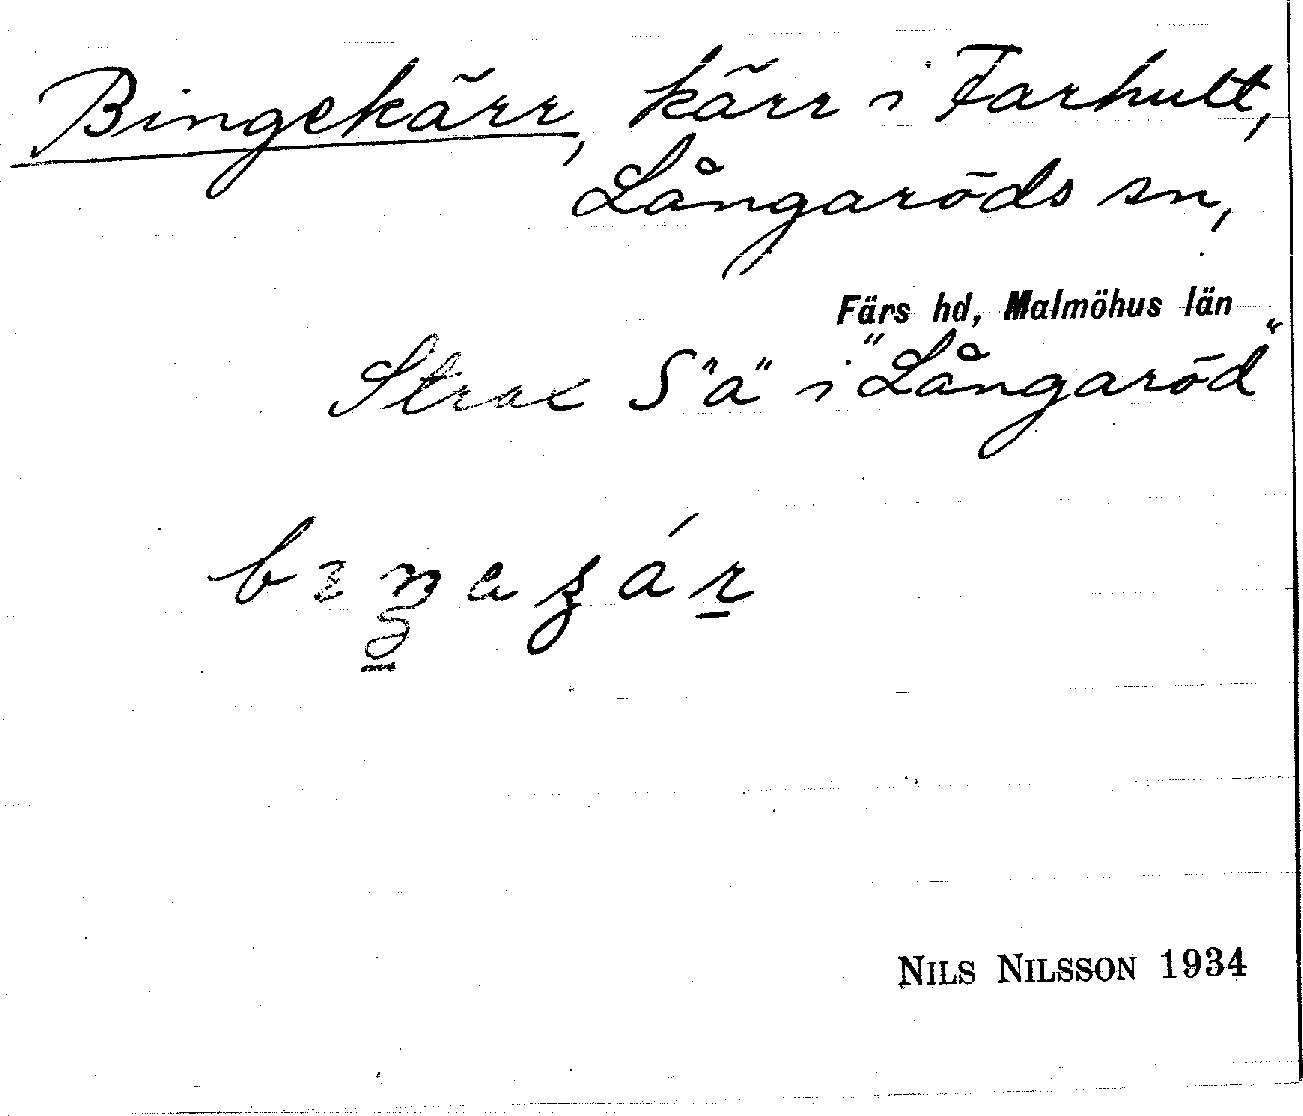 Bingekärr, kärr i Farhult,
Långaröds sn,
Färs hd, Malmöhus län
Strax S "ä" i "Långaröd"
NILS NILSSON 1934